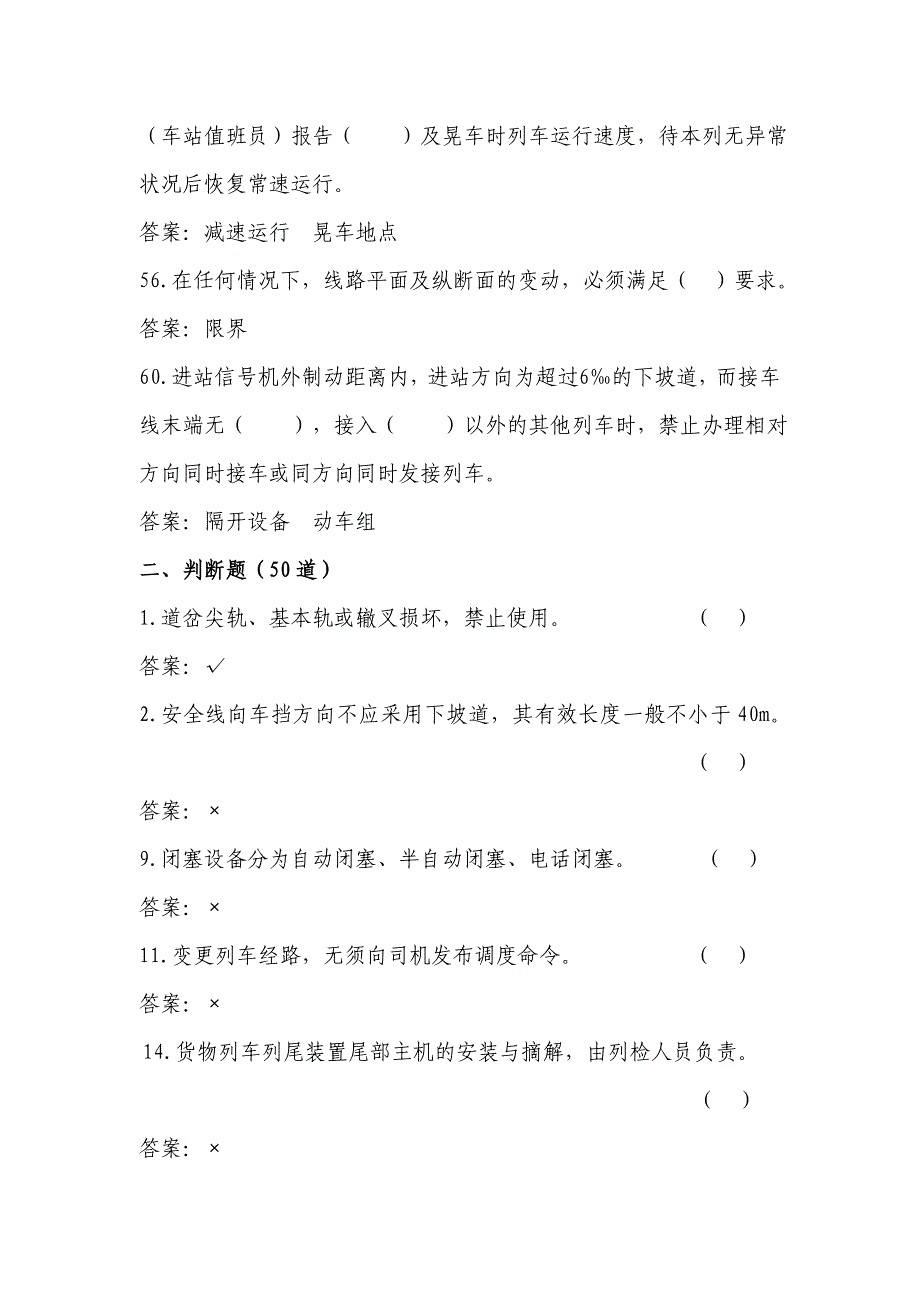 （车站值班员）报告（　　）及晃车时列车运行速度，待本列无异常
状况后恢复常速运行。
答案：减速运行　晃车地点
56.在任何情况下，线路平面及纵断面的变动，必须满足（　）要求。
答案：限界
60.进站信号机外制动距离内，进站方向为超过6‰的下坡道，而接车
线末端无（　　），接入（　　）以外的其他列车时，禁止办理相对
方向同时接车或同方向同时发接列车。
答案：隔开设备　动车组
二、判断题（50道）
1.道岔尖轨、基本轨或辙叉损坏，禁止使用。　　　　　　（　）
答案：√
2.安全线向车挡方向不应采用下坡道，其有效长度一般不小于 40m。
（　）
答案：×
9.闭塞设备分为自动闭塞、半自动闭塞、电话闭塞。　　　　（　）
答案：×
11.变更列车经路，无须向司机发布调度命令。　　　　　　（　）
答案：×
14.货物列车列尾装置尾部主机的安装与摘解，由列检人员负责。
（　）
答案：×